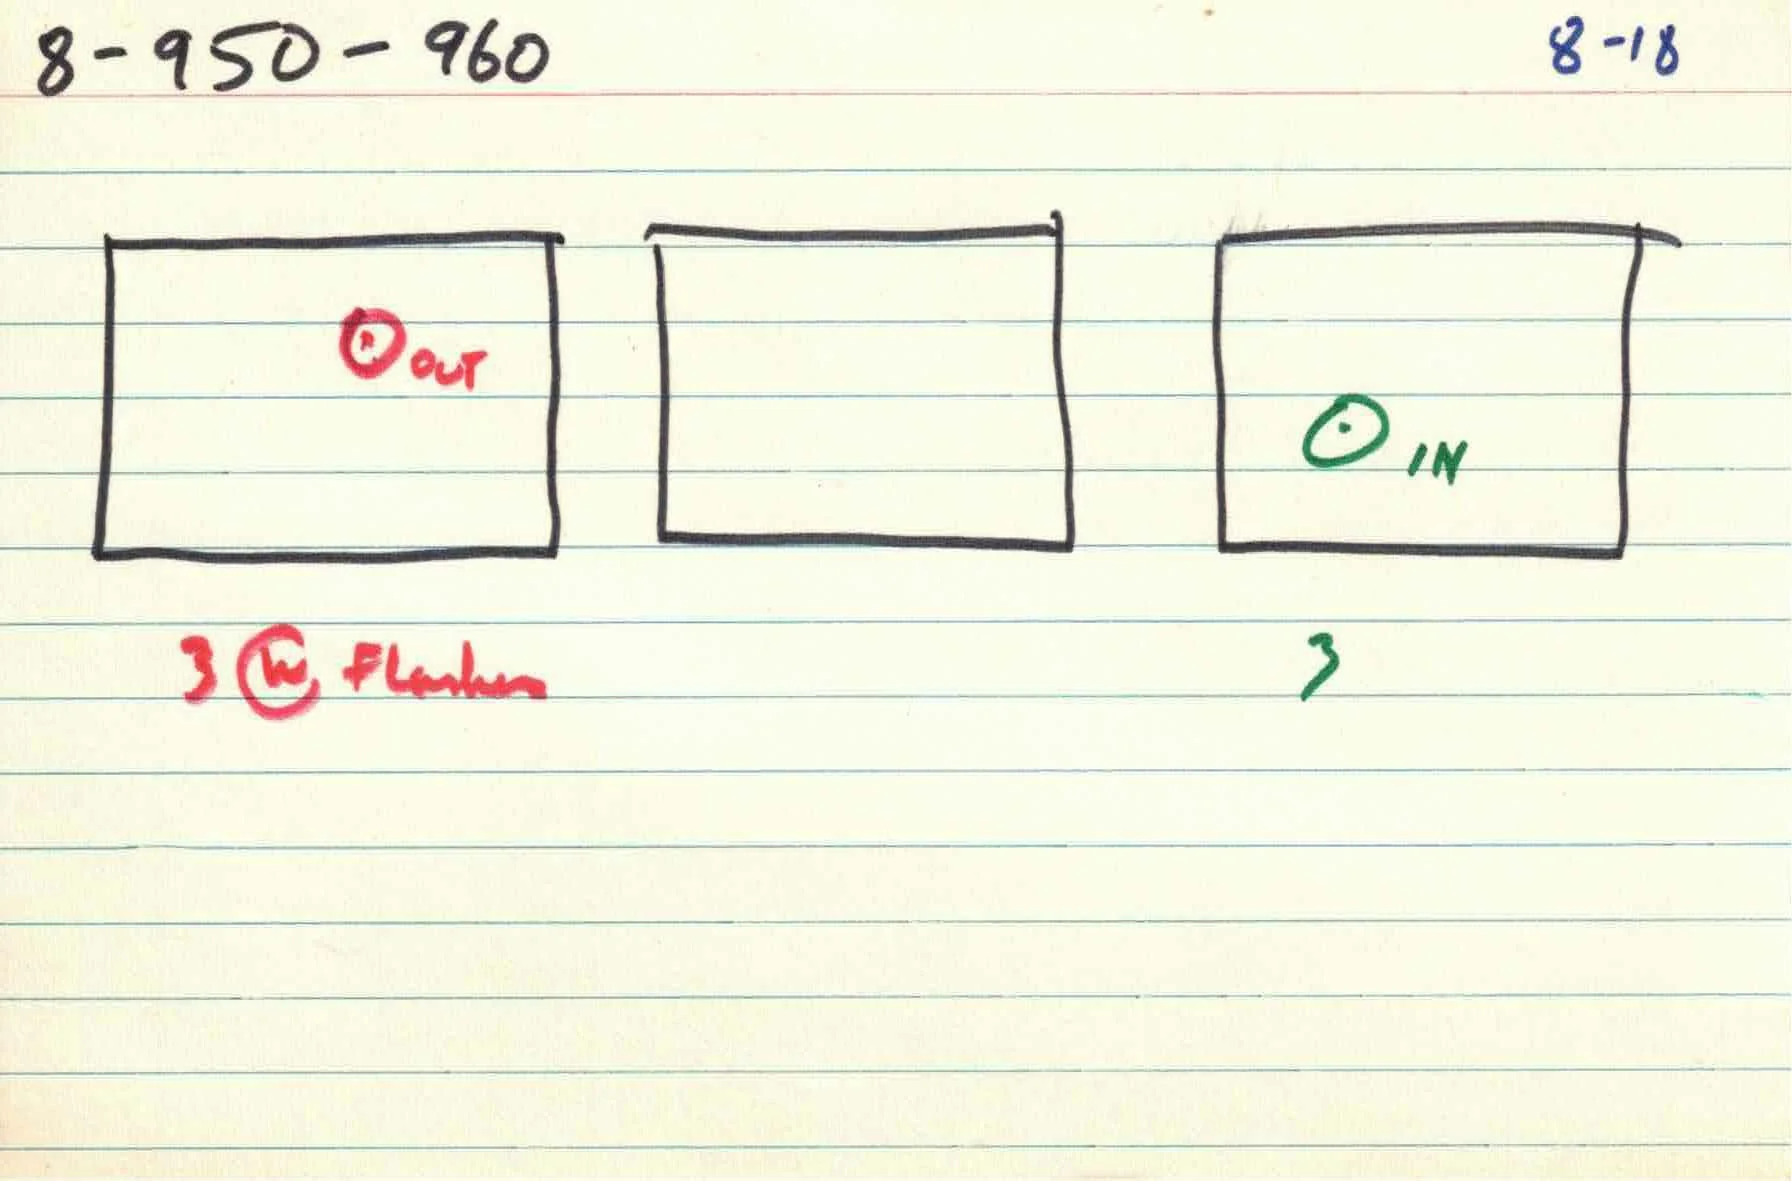 8-950-960 8-18
OUT
IN
3 W Flashers
3